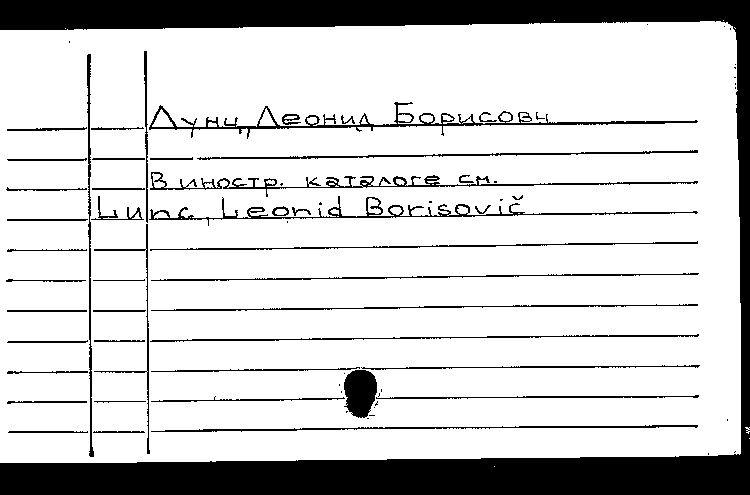 Лунц, Леонид Борисович
В иностр. каталоге см.
Lunc, Leonid Borisovič